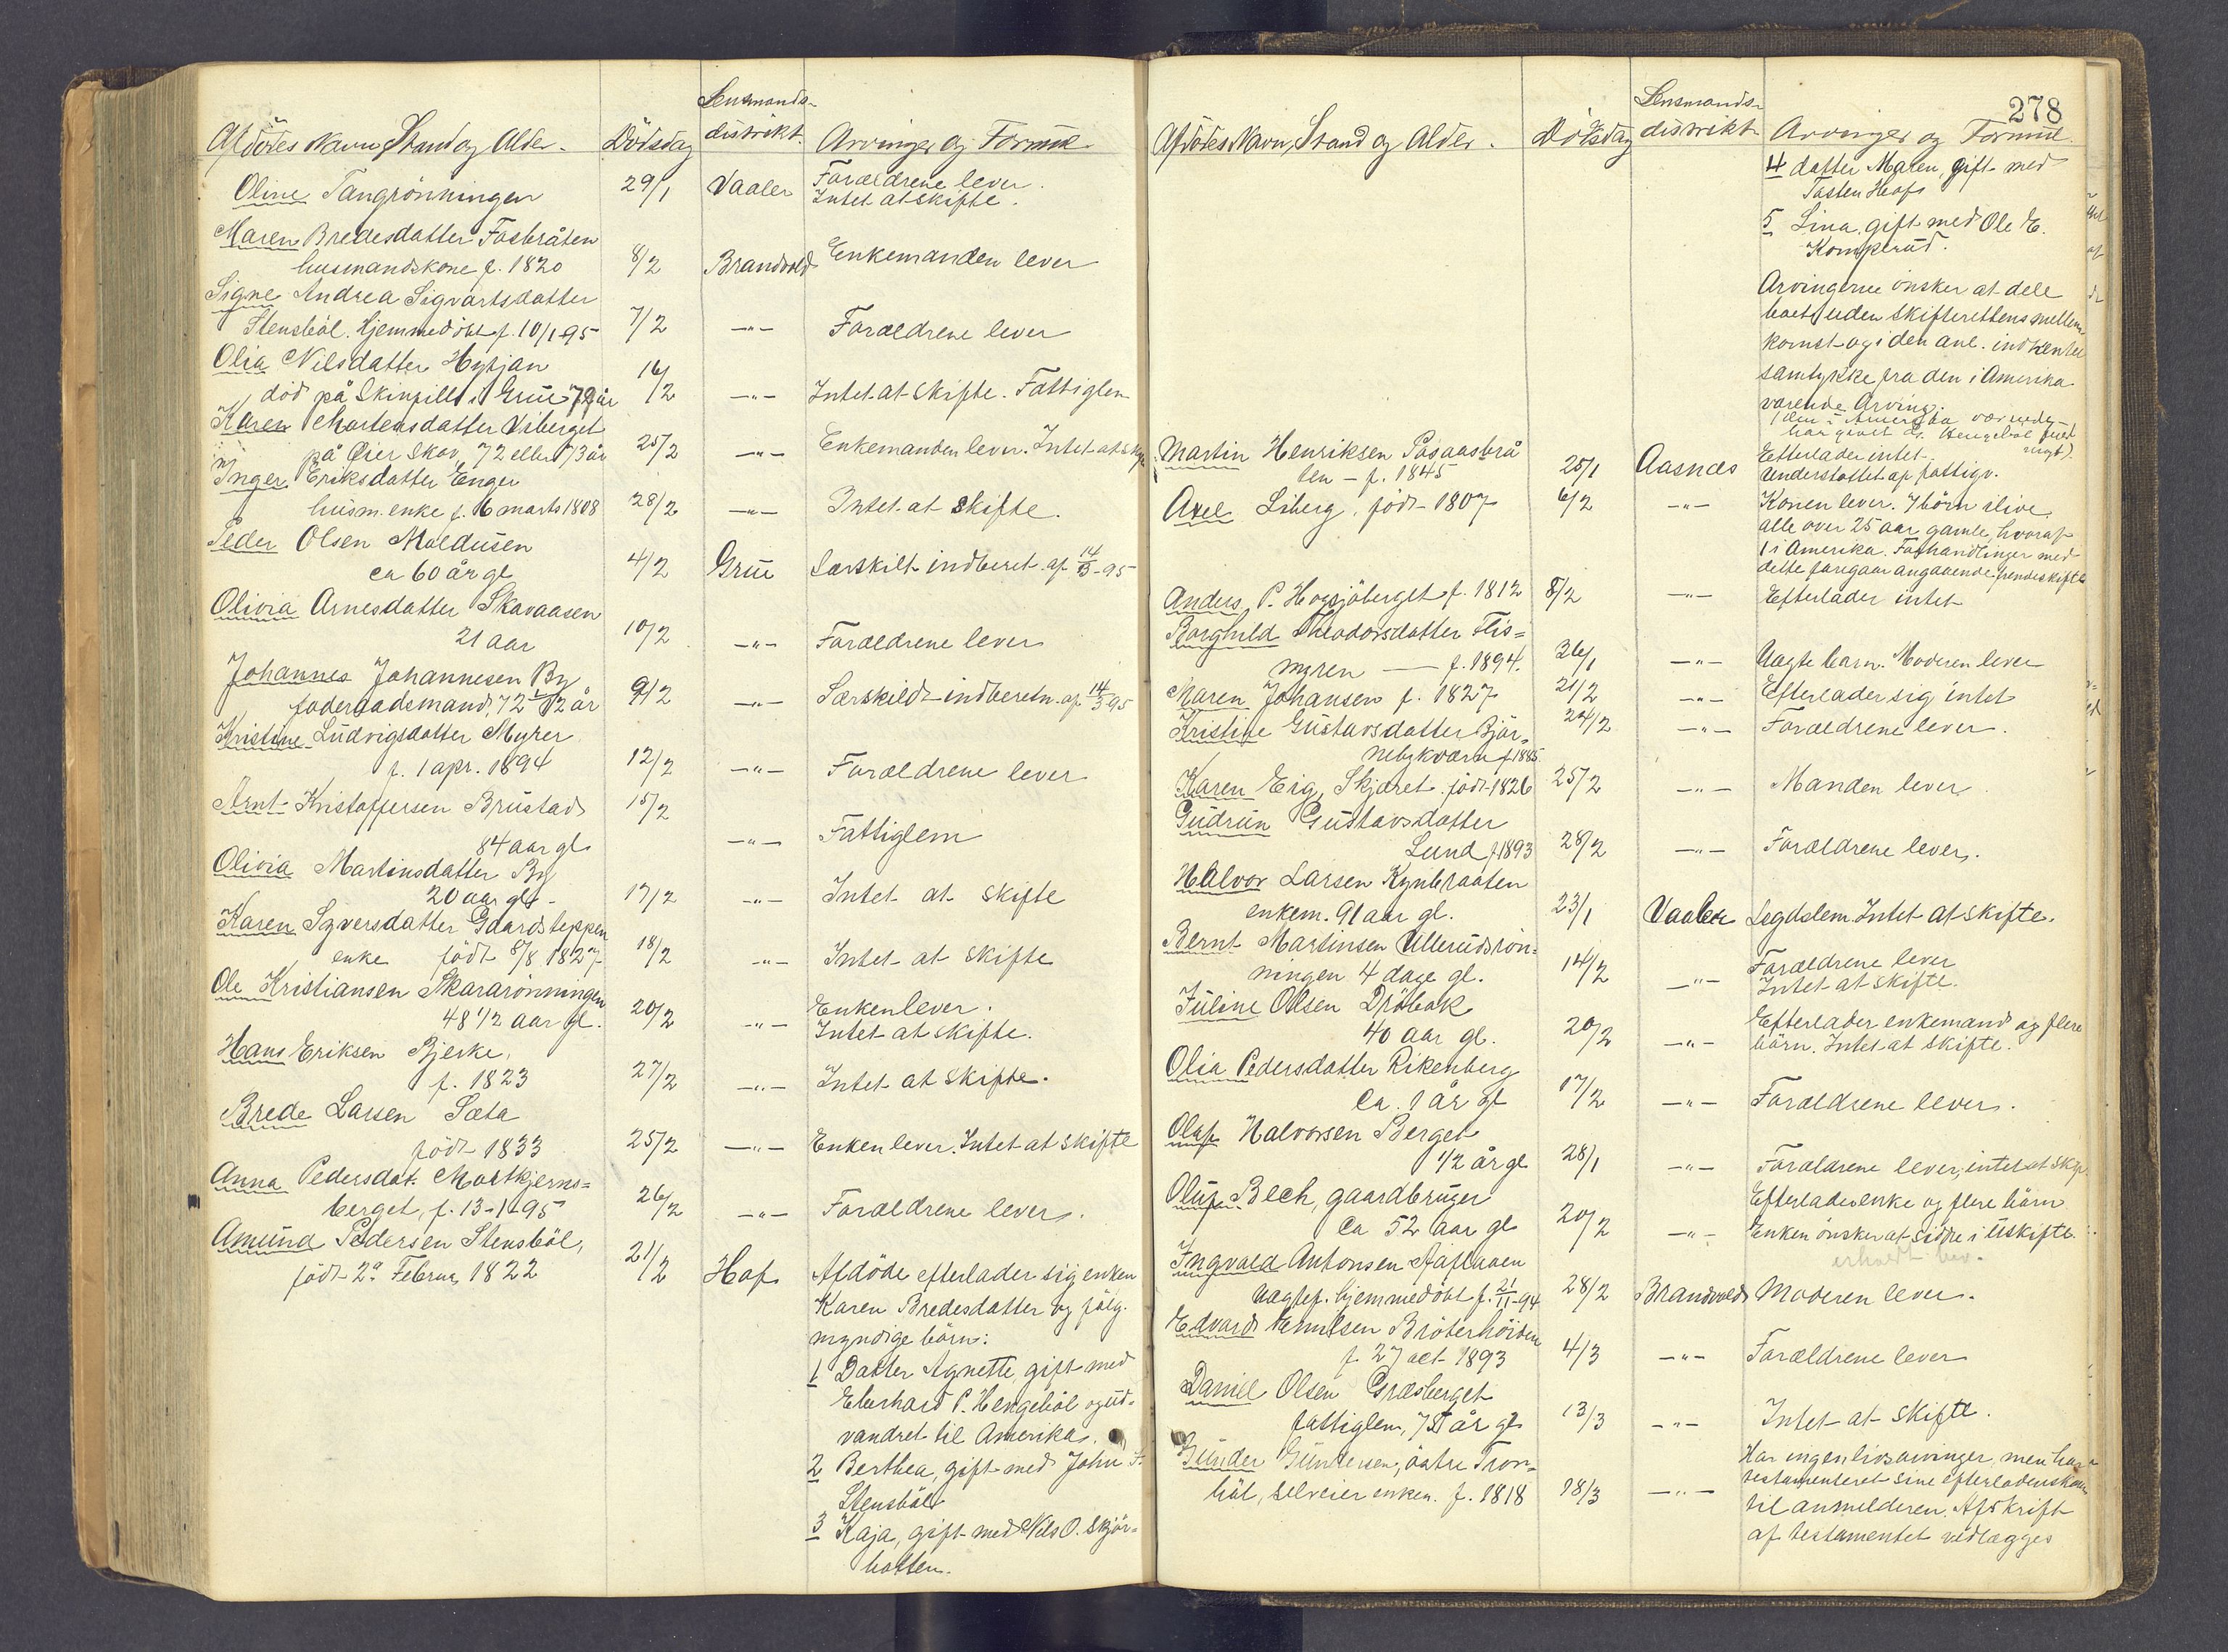 Lensmands-
Afdödes Navn, Stand og Alder. Dödsdag distrikt. Arvinger og Formue
Oline Tangrönningen 29/1 Vaaler Forældrene lever.
Intet at skifte.
Maren Bredesdatter Fosbråten
husmandskone f. 1820 8/2 Brandvold Enkemanden lever
Signe Andrea Sigvartsdatter
Stensböl. Hjemmedöbt f. 10/1 95 7/2 —"— Forældrene lever
Olia Nilsdatter Hytjan
död på i Grue 79 år 16/2 —"— Intet at skifte. Fattiglem
Karen Mortensdatter Viberget
på Öier Skov, 72 eller 73 år 25/2 —"— Enkemanden lever. Intet at skifte
Inger Eriksdatter Enger
husm. enke f. 6 marts 1808 28/2 —"— Intet at skifte.
Peder Olsen Moldusen
ca 60 år gl 4/2 Grue Særskilt indberet. af 14/3-95
Olivia Arnesdatter Skavaasen
21 aar 10/2 —"— Forældrene lever
Johannes Johannesen By
foderaadsmand, 72 1/2 år 9/2 —"— Særskildt indberetn. af 14/3 95
Kristine Ludvigsdatter Myrer
f. 1 apr. 1894 12/2 —"— Forældrene lever
Arnt Kristoffersen Brustad 15/2
84 aar gl. —"— Fattiglem
Olivia Martinsdatter By
20 aar gl. 17/2 —"— Intet at skifte
Karen Syversdatter Gaardsteppen
enke födt 8/8 1827 18/2 —"— Intet at skifte
Ole Kristiansen Skararönningen
48 1/2 aar gl. 20/2 —"— Enken lever.
Intet at skifte.
Hans Eriksen Bjerke,
f. 1823 27/2 —"— Intet at skifte.
Brede Larsen Sæta
födt 1833 25/2 —"— Enken lever. Intet at skifte
Anna Pedersdat. Mortkjerns=
berget, f. 13-1-95 26/2 —"— Forældrene lever.
Amund Pedersen Stensböl,
födt 2. Februar 1822 21/2 Hof Afdöde efterlader sig enken
Karen Bredesdatter og fölg.
myndige börn:
1 Datter Agnette, gift med
Eberhard P. Hengeböl og ud-
vandret til Amerika.
2 Berthea, gift med John
Stensböl
3 Kaja, gift med Nils O. Skjör=
hatten.
278
Lensmands-
Afdödes Navn, Stand og Alder. Dödsdag distrikt Arvinger og Formue
4 datter Maren, gift med
Tosten Hof
5 Lina, gift med Ole E.
Komperud.
Arvingerne önsker at dele
boet uden skifterettens mellem-
komst og i den anl. indhentet
samtykke fra den i Amerika
varende Arving.
(den i Amerika værende
har givet Hengeböl fuld
magt)
Martin Henriksen Påsaasbrå
ten – f. 1845 25/1 Aasnæs Efterlader intet
Understøttet af fattigv.
Axel Liberg, födt 1807 6/2 —"— Konen lever. 7 börn ilive
alle over 25 aar gamle, hvoraf
1 i Amerika. Forhandlinger med
dette foregaar angaaende frendeskifte
Anders P. Hogsjöberget f. 1812 8/2 —"— Efterlader intet
Borghild Theodorsdatter Flis=
myren — f. 1894. 26/1 —"— Uægte barn. Moderen lever
Maren Johansen f. 1827 21/2 —"— Efterlader sig intet
Kristine Gustavsdatter Björ- 24/2 —"— Forældrene lever.
nebykværn f. 1885
Karen Eig, Skjæret födt 1826 25/2 —"— Manden lever
Gudrun Gustavsdatter
Lund f. 1893 28/2 —"— Forældrene lever.
Halvor Larsen Kynbraaten
enkem. 91 aar gl. 23/1 Vaaler Legdslem. Intet at skifte.
Bernt Martinsen Ullerudsrön-
ningen 4 dage gl. 14/2 —"— Forældrene lever
Intet at skifte.
Juline Olsen Dröbak
40 aar gl. 20/2 —"— Efterlader enkemand og flere
börn. Intet at skifte.
Olia Pedersdatter Rikenberg
Ca. 1 år gl 17/2 —"— Forældrene lever.
Olaf Halvorsen Berget
1/2 år gl 28/1 —"— Forældrene lever, intet at skifte
Oluf Bech, gaardbruger
Ca 52 aar gl 20/2 —"— Efterlader enke og flere börn
Enken önsker at sidde i uskifte.
erholdt bev.
Ingvald Antonsen
uægtef. hjemmedöbt f. 21/11-94 28/2 Brandvold Moderen lever.
Edvard Emilsen Bröterhöiden
f. 27 oct 1893 4/3 —"— Forældrene lever
Daniel Olsen Græsberget
fattiglem, 75 år gl 13/3 —"— Intet at skifte.
Gunder Gundersen, östre Tron-
böl, selveier enkem. f. 1818 18/3 —"— Har ingen livsarvinger, men har
testamenteret sine efterladenskaber
til anmelderen. Afskrift
af testamentet vedlægges